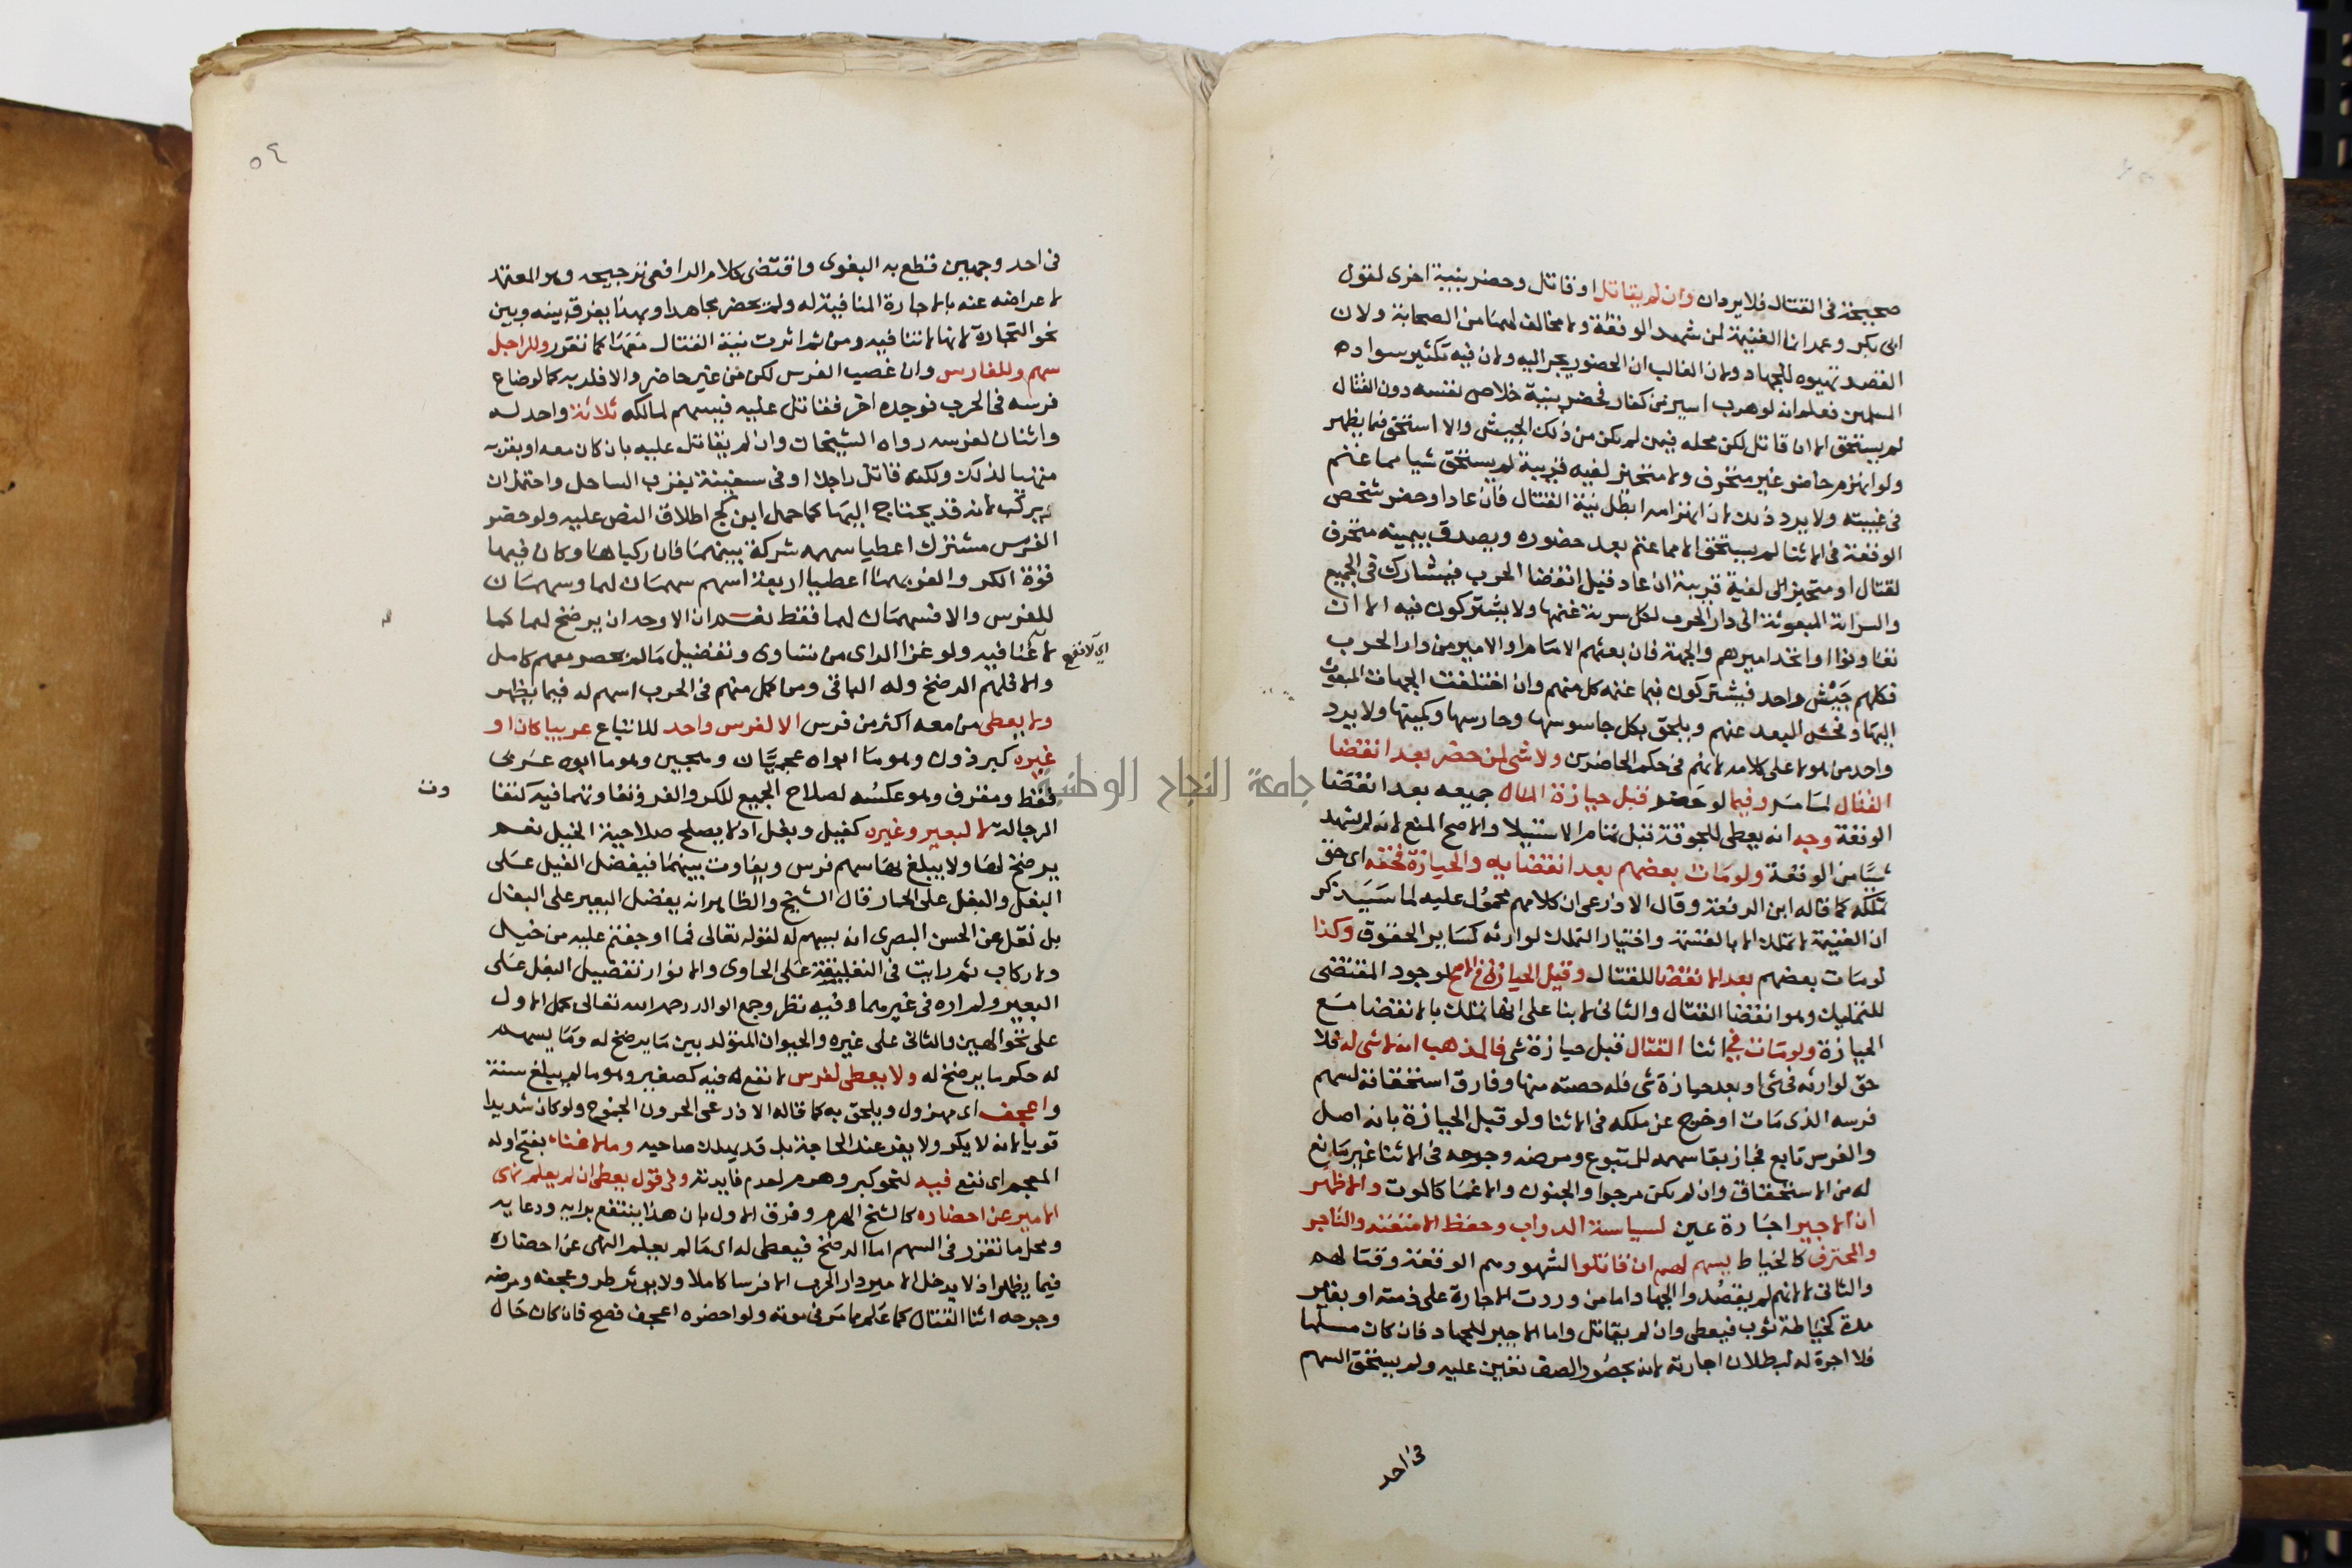 صحيحة في القتال فلا يردان وان لم يقاتل او قاتل وحضر بنية اخرى لقول
ابى بكر وعمر انما الغنيمة لمن شهد الوقعة ولا مخالف لهما من الصحابة ولان
القصد تهيوه للجهاد ولان الغالب ان الحضور يجر اليه ولان فيه تكثير سواده
المسلمين فعلم انه لو هرب اسير من كفار فحضر بنية خلاص نفسه دون القتال
لم يستحق الا ان قاتل لكن محله فيمن لم يكن من ذلك الجيش والا استحق فيما يظهر
ولو انهزم حاضر غير متحرف ولا متحيز لفيه قريبة لم يستحق شيا مما غنم
في غيبته ولا يرد ذلك لان انهزامه ابطل نية القتال فان عاد او حضر شخص
الوقعة في الاثنا لم يستحق الا مما غنم بعد حضوره ويصدق بيمينه متحرف
لقتال او متحيز الى لفية قريبة ان عاد قبل انقضا الحرب فيشارك في الجميع
والسراية المبعوثة الى دار الحرب لكل سرية غنمها ولا يشتركون فيه الا ان
تعاونوا او اتحد اميرهم والجهة فان بعثهم الامام او الامير من دار الحرب
فكلهم جيش واحد فيشتركون فيما غنمه كل منهم وان اختلفت الجهات المبعوث
اليها وفحش البعد عنهم ويلحق بكل جاسوسها وحارسها وكمينها ولا يرد
واحد من هولا على كلامه لانهم في حكم الحاضرين ولا شى لمن حضر بعد انقضا
القتال لما مر وفيما لو حضر قبل حيازة المال جميعه بعد انقضا
الوقعة وجه انه يعطى للحوقه قبل تمام الاستيلا والاصح المنع لانه لم يشهد
شيا من الوقعة ولو مات بعضهم بعد انقضايه والحيازة فحقه اى حق
تملكه كما قاله ابن الرفعة وقال الاذرعى ان كلامهم محمول عليه لما سيذكر
ان الغنيمة لا تملك الا بالقسمة واختيار التملك لوارثه كساير الحقوق وكذا
لو مات بعضهم بعد الانقضا للقتال وقبل الحيازة في الاصح لوجود المقتضى
للتمليك وهو انقضا القتال والثانى لا بنا على انها تملك بالانقضا مع
الحيازة ولو مات في اثنا القتال قبل حيازة شى فالمذهب انه لا شى له فلا
حق لوارثه في شى او بعد حيازة شى فله حصته منها وفارق استحقاقه لسهم
فرسه الذى مات او خرج عن ملكه في الاثنا ولو قبل الحيازة بانه اصل
والفرس تابع فجاز بقا سهمه للمتبوع ومرضه وجرحه في الاثنا غير مانع
له من الاستحقاق وان لم يكن مرجوا والجنون والاغما كالموت والاظهر
ان الاجير اجارة عين لسياسة الدواب وحفظ الامتعة والتاجر
والمحترف كالخياط يسهم لهم ان قاتلوا لشهودهم الوقعة وقتالهم
والثانى لا لانهم لم يقصدوا الجهاد اما من وردت الاجارة على ذمته او بغير
مدة كخياطة ثوب فيعطى وان لم يقاتل واما الاجير للجهاد فان كان مسلما
فلا اجرة له لبطلان اجارته لانه بحضور الصف تعين عليه ولم يستحق السهم
في احد
٥٤
في احد وجهين قطع به البغوى واقتضى كلام الرافعى ترجيحه وهو المعتمد
لاعراضه عنه بالاجارة المنافية له ولم يحضر مجاهدا وبهذا يفرق بينه وبين
نحو التجارة لانها لا تنافيه ومن ثم اثرت نية القتال معها كما تقرر وللراجل
سهم وللفارس وان غصب الفرس لكن من غير حاضر والا فلربه كما لو ضاع
فرسه في الحرب فوجده اخر فقاتل عليه فيسهم لمالكه ثلاثة واحد له
واثنان لفرسه رواه الشيخان وان لم يقاتل عليه بان كان معه او بقربه
متهيا لذلك ولكنه قاتل راجلا او في سفينة بقرب الساحل واحتمل ان
يركب لانه قد يحتاج اليها كما حمل ابن كج اطلاق النص عليه ولو حضر
الفرس مشترك اعطيا سهمه شركة بينهما فان ركباها وكان فيها
قوة الكر والفر بهما اعطيا اربعة اسهم سهمان لهما وسهمان
للفرس والا فسهمان لهما فقط نعم ان الاوجه ان يرضخ لها كما
لا غنا فيه ولو غزا الراى من تساوى وتفضيل ما لم يحصر معهم كامل
اى لا نفع
والا فلهم الرضخ وله الباقى ومن كمل منهم في الحرب اسهم له فيما يظهر
ولا يعطى من معه اكثر من فرس الا لفرس واحد للاتباع عربيا كان او
غيره كبرذون وهو ما ابواه عجميان وهجين وهو ما ابوه عربى
فقط ومقرف وهو عكسه لصلاح الجميع للكر والفر وتفاوتهما فيه كتفا
وت
الرجالة لا لبعير وغيره كفيل وبغل اذ لا يصلح صلاحية الخيل نعم
يرضخ لها ولا يبلغ بها سهم فرس ويفاوت بينهما فيفضل الفيل على
البغل والبغل على الحمار قال الشيخ والظاهر انه يفضل البعير على البغل
بل نقل عن الحسن البصرى انه يسهم له لقوله تعالى فما اوجفتم عليه من خيل
ولا ركاب ثم رايت في التعليقة على الحاوى والانوار تفضيل البغل على
البعير ولم اره في غيرهما وفيه نظر وجمع الوالد رحمه الله تعالى بحمل الاول
على نحو الهجين والثانى على غيره والحيوان المتولد بين ما يرضخ له وما يسهم
له حكم ما يرضخ له ولا يعطى لفرس لا نفع له فيه كصغير وهو ما لم يبلغ سنة
واعجف اى مهزول ويلحق به كما قاله الاذرعى الحرون الجنوح ولو كان شديدا
قويا لانه لا يكر ولا يفر عند الحاجة بل قد يهلك صاحبه وما لا غناء بفتح اوله
المعجم اى نفع فيه لنحو كبر وهرم لعدم فايدته وفى قول يعطى ان لم يعلم نهى
الامير عن احضاره كالشيخ الهرم وفرق الاول بان هذا ينتفع برايه ودعايه
ومحل ما تقرر في السهم اما الرضخ فيعطى له اى ما لم يعلم النهى عن احضاره
فيما يظهر اذ لا يدخل الامير دار الحرب الا فرسا كاملا ولا يوثر طرو عجفه ومرضه
وجرحه اثنا القتال كما علم مما مر في موته ولو احضره اعجف فصح فان كان حال
جامعة النجاح الوطنية